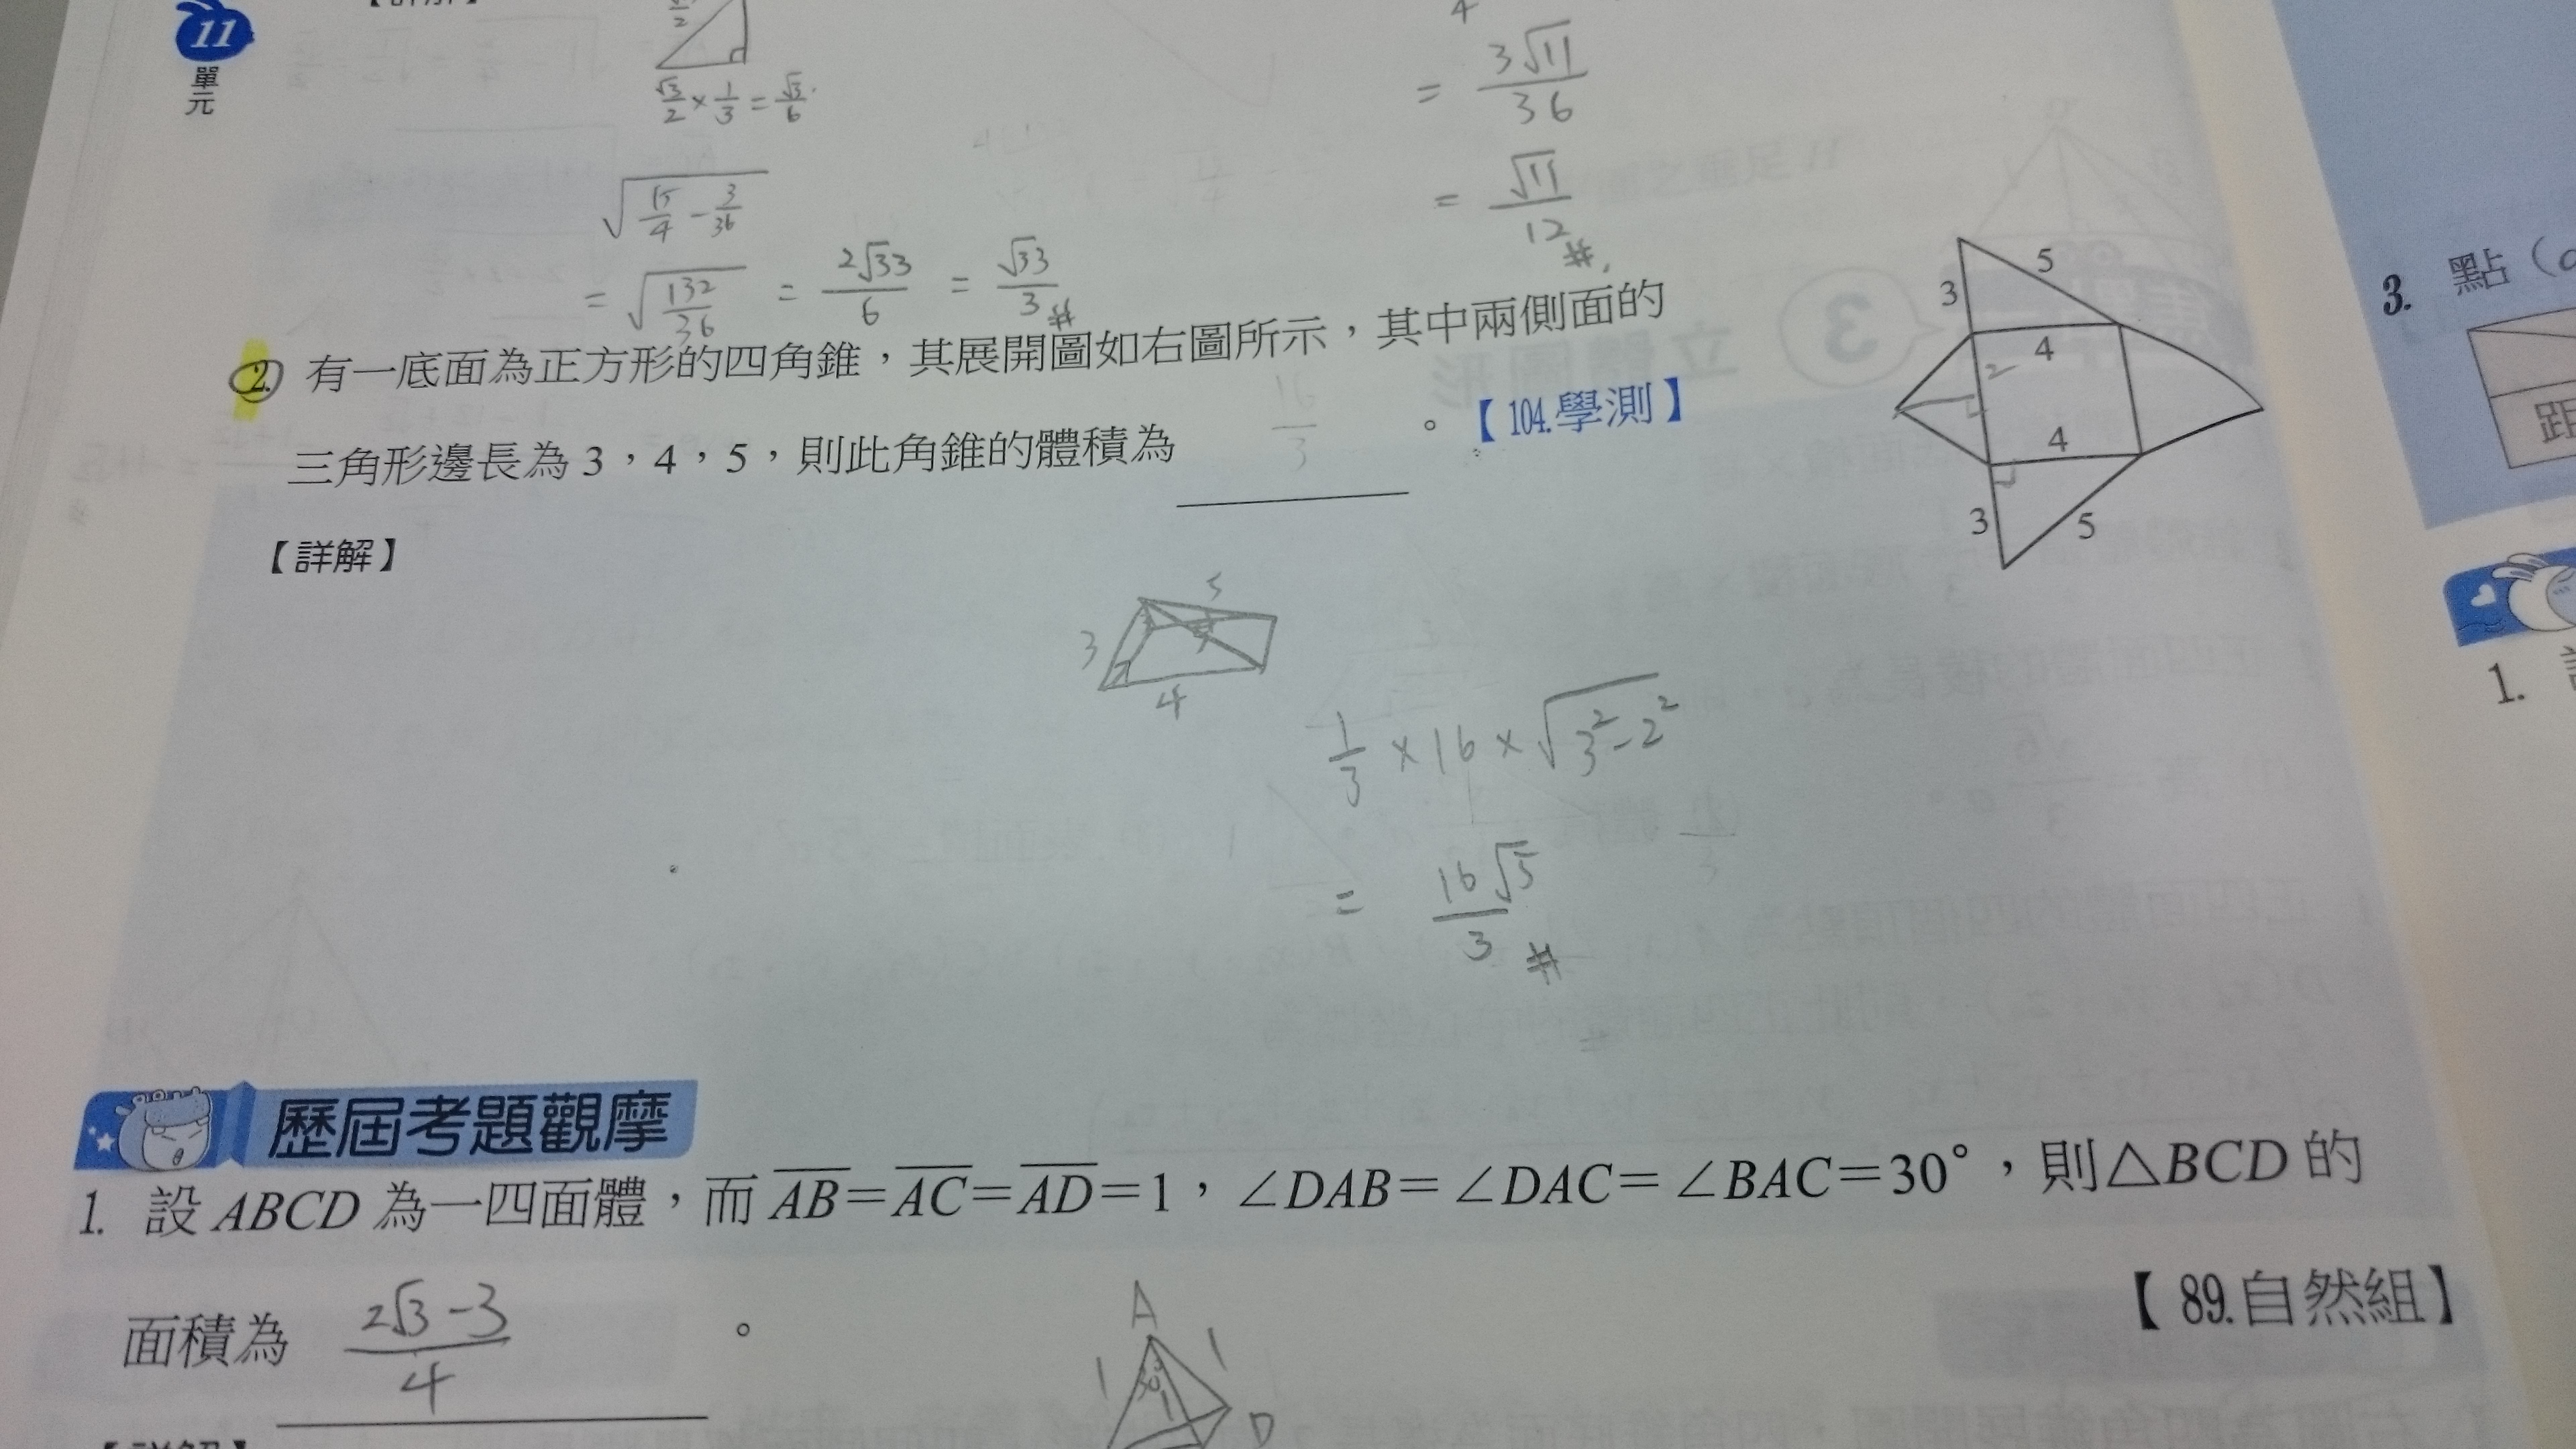 11
單元
√3/2 × 1/3 = √3/6
√(15/4 − 3/36)
= √(132/36) = 2√33/6 = √33/3 #
= 3√11/36
= √11/12 #
2. 有一底面為正方形的四角錐，其展開圖如右圖所示，其中兩側面的
三角形邊長為 3，4，5，則此角錐的體積為 16/3 。【104.學測】
3 5
4
2
4
3 5
【詳解】
5
3
4
1/3 × 16 × √(3²−2²)
= 16√5/3 #
歷屆考題觀摩
1. 設 ABCD 為一四面體，而 AB=AC=AD=1，∠DAB=∠DAC=∠BAC=30°，則△BCD 的
面積為 (2√3−3)/4 。 【89.自然組】
A
1 1
30
1
D
【詳解】
3. 點（
距
1.